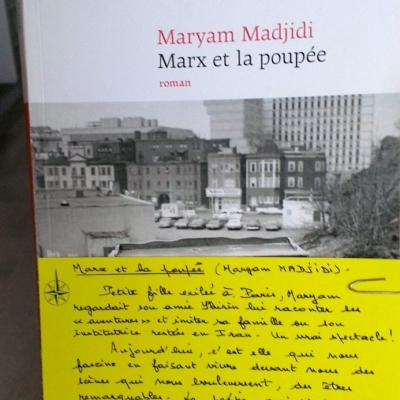 Maryam Madjidi
Marx et la poupée
roman
Marx et la poupée (Maryam MADJIDI).
Petite fille exilée à Paris, Maryam
regardait son amie Shirin lui raconter ses
"aventures" et imiter sa famille ou son
institutrice restées en Iran. Un vrai spectacle!
Aujourd'hui, c'est elle qui nous
fascine en faisant vivre devant nous des
scènes qui nous bouleversent, des êtres
remarquables.